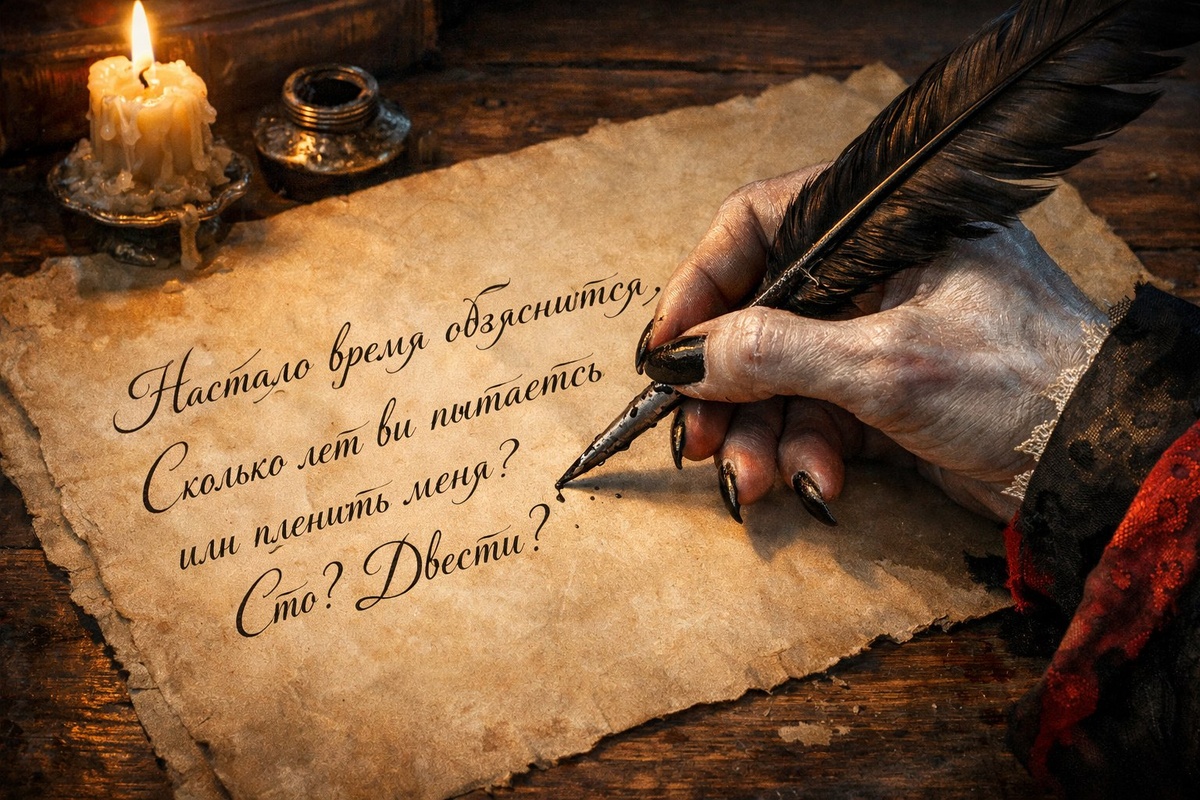 Настало время обзяснится,
Сколько лет ви пытаетсь
илн пленить меня?
Сто? Двести?